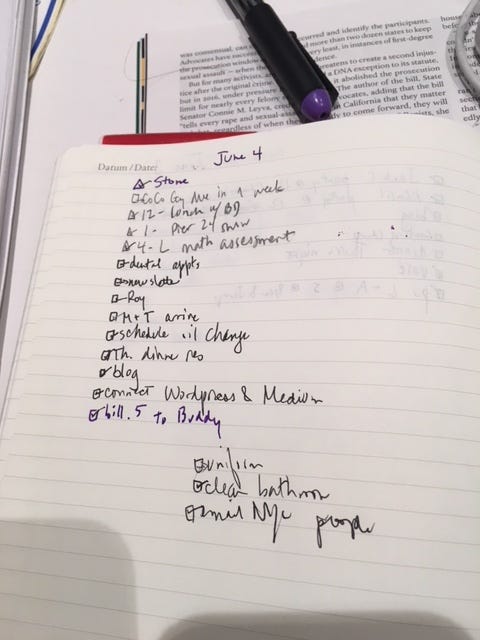 was consensual, can
curred and identify the participants.
Advocates have succe
more than two dozen states to keep
the prosecution window
very least, in instances of first-degree
sexual assault — when the
reatens to create a second injus-
But for many activists,
a DNA exception to its statute.
tice after the original crime.
it abolished the prosecution
but in 2016, under pressure
The author of the bill, State
limit for nearly every felony
vocates, adding that the bill
Senator Connie M. Leyva, cred
California that they matter
"tells every rape and sexual-assa
dy to come forward, they will
regardless of when the
Datum / Date:
June 4
Stone
CoCo Gay due in a week
12- Lunch w/ BD
1- Pier 24 show
4- L math assessment
dental appts
newslate
Roy
M+T arrive
schedule oil change
Th. dinner res
blog
connect Wordpress & Medium
bill.5 to Buddy
uniform
clean bathroom
email NYC people